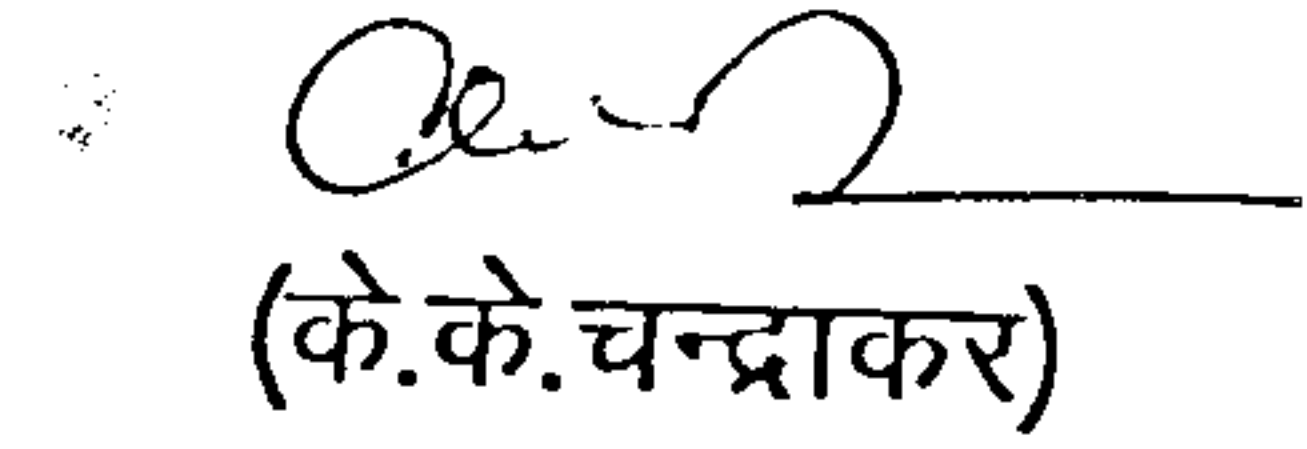 (के.के.चन्द्राकर)